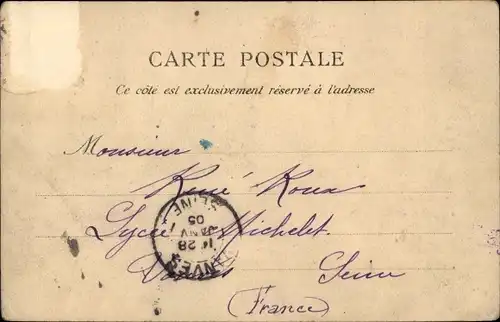 CARTE POSTALE
Ce côté est exclusivement réservé à l'adresse
Monsieur
René Roux
Lycée Michelet
Vanves Seine
(France)
VANVES
28
JANV
05
SEINE